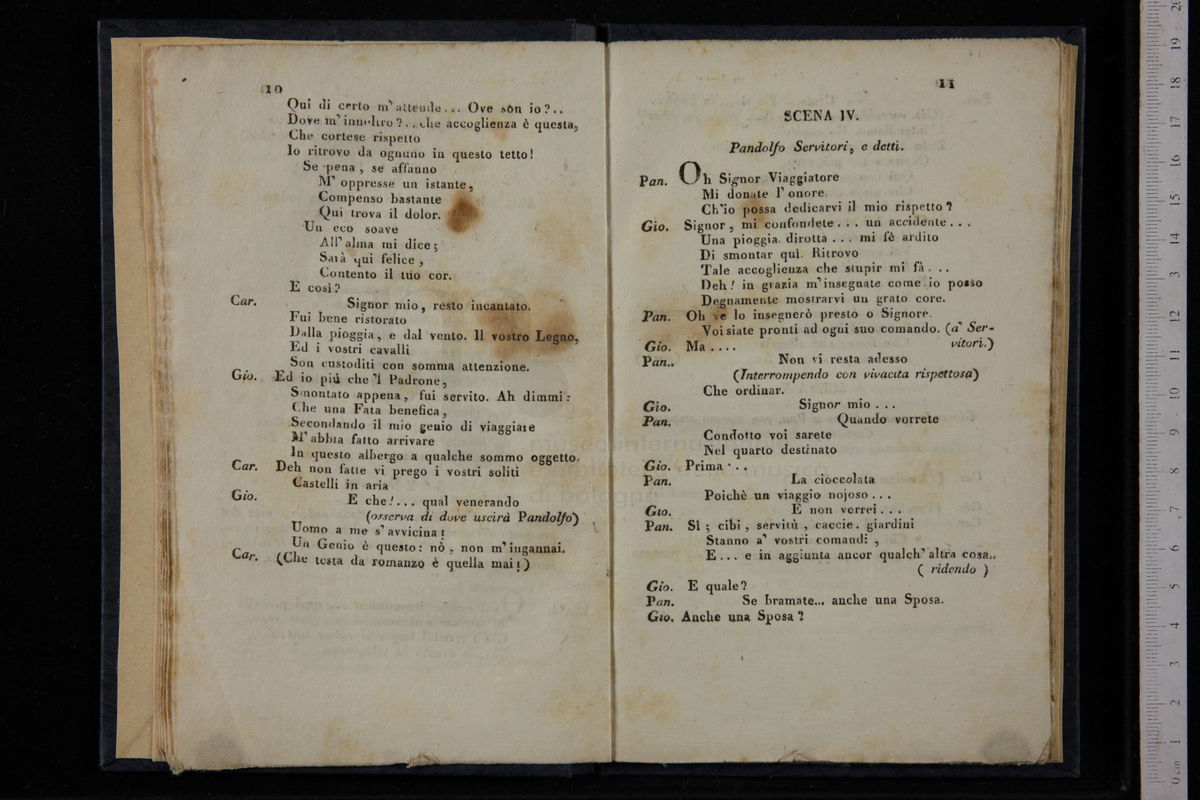 10
Qui di certo m'attende... Ove son io?..
Dove m'innoltro?..che accoglienza è questa,
Che cortese rispetto
Io ritrovo da ognuno in questo tetto!
Se pena, se affanno
M' oppresse un istante,
Compenso bastante
Qui trova il dolor.
Un eco soave
All' alma mi dice;
Sarà qui felice,
Contento il tuo cor.
E così?
Car. Signor mio, resto incantato.
Fui bene ristorato
Dalla pioggia, e dal vento. Il vostro Legno,
Ed i vostri cavalli
Son custoditi con somma attenzione.
Gio. Ed io più che 'l Padrone,
Smontato appena, fui servito. Ah dimmi:
Che una Fata benefica,
Secondando il mio genio di viaggiare
M' abbia fatto arrivare
In questo albergo a qualche sommo oggetto.
Car. Deh non fatte vi prego i vostri soliti
Castelli in aria
Gio. E che!... qual venerando
(osserva di dove uscirà Pandolfo)
Uomo a me s' avvicina!
Un Genio è questo: nò, non m' ingannai.
Car. (Che testa da romanzo è quella mai!)
11
SCENA IV.
Pandolfo Servitori, e detti.
Pan. Oh Signor Viaggiatore
Mi donate l' onore
Ch'io possa dedicarvi il mio rispetto?
Gio. Signor, mi confondete... un accidente...
Una pioggia dirotta... mi fè ardito
Di smontar quì. Ritrovo
Tale accoglienza che stupir mi fà...
Deh! in grazia m'insegnate come io posso
Degnamente mostrarvi un grato core.
Pan. Oh ve lo insegnerò presto o Signore.
Voi siate pronti ad ogni suo comando. (a' Ser-
Gio. Ma.... vitori.)
Pan.. Non vi resta adesso
(Interrompendo con vivacita rispettosa)
Che ordinar.
Gio. Signor mio...
Pan. Quando vorrete
Condotto voi sarete
Nel quarto destinato
Gio. Prima...
Pan. La cioccolata
Poichè un viaggio nojoso...
Gio. E non vorrei...
Pan. Sì; cibi, servitù, caccie, giardini
Stanno a' vostri comandi,
E... e in aggiunta ancor qualch' altra cosa..
( ridendo )
Gio. E quale?
Pan. Se bramate... anche una Sposa.
Gio. Anche una Sposa?
museo interna
biblioteca della musica
di bologna